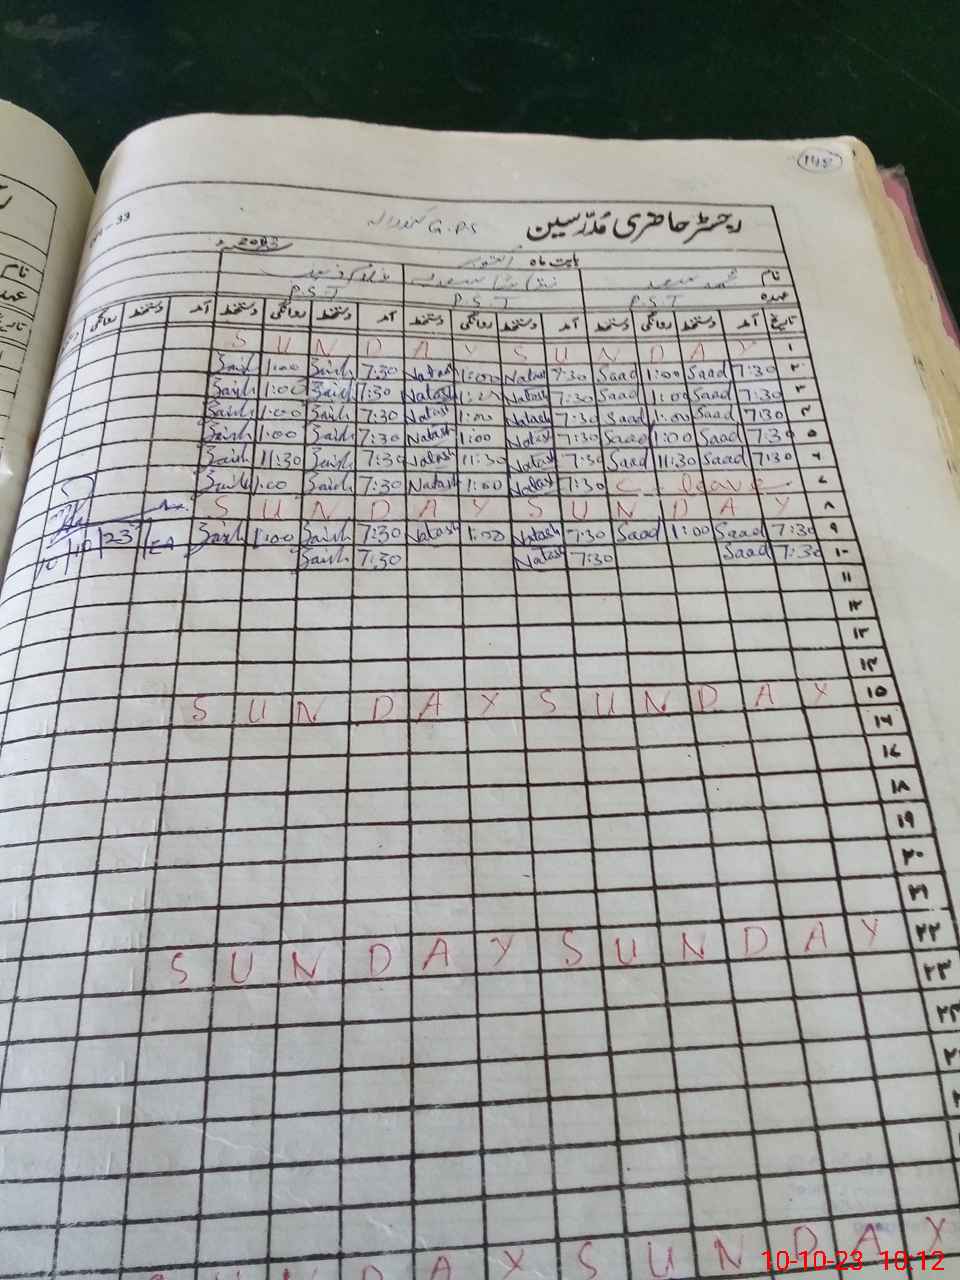 ۱۴۵
رجسٹر حاضری مُدرّسین G.P.S
بابت ماہ اکتوبر 2023
نام محمد سعد
عہدہ P.S.T P.S.T P.S.T
تاریخ آمد دستخط روانگی دستخط آمد دستخط روانگی دستخط آمد دستخط روانگی دستخط آمد دستخط روانگی
۱ S U N D A Y S U N D A Y
۲ 7:30 Saad 1:00 Saad 7:30 Natash 1:00 Natash 7:30 Zaish 1:00 Zaish
۳ 7:30 Saad 1:00 Saad 7:30 Natash 1:00 Natash 7:30 Zaish 1:00 Zaish
۴ 7:30 Saad 1:00 Saad 7:30 Natash 1:00 Natash 7:30 Zaish 1:00 Zaish
۵ 7:30 Saad 1:00 Saad 7:30 Natash 1:00 Natash 7:30 Zaish 1:00 Zaish
۶ 7:30 Saad 11:30 Saad 7:30 Natash 11:30 Natash 7:30 Zaish 11:30 Zaish
۷ C - leave 7:30 Natash 1:00 Natash 7:30 Zaish 1:00 Zaish
۸ S U N D A Y S U N D A Y
۹ 7:30 Saad 1:00 Saad 7:30 Natash 1:00 Natash 7:30 Zaish 1:00 Zaish
۱۰ 7:30 Saad 7:30 Natash 7:30 Zaish
۱۱
۱۲
۱۳
۱۴
۱۵ S U N D A Y S U N D A Y
۱۶
۱۷
۱۸
۱۹
۲۰
۲۱
۲۲ S U N D A Y S U N D A Y
۲۳
۲۴
D A Y S U N D A Y
10-10-23 10:12